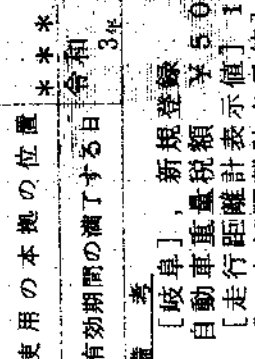 使用の本拠の位置 ***
有効期間の満了する日 令和 3年
備考
[岐阜],新規登録
自動車重量税額 ¥50
[走行距離計表示値] 1